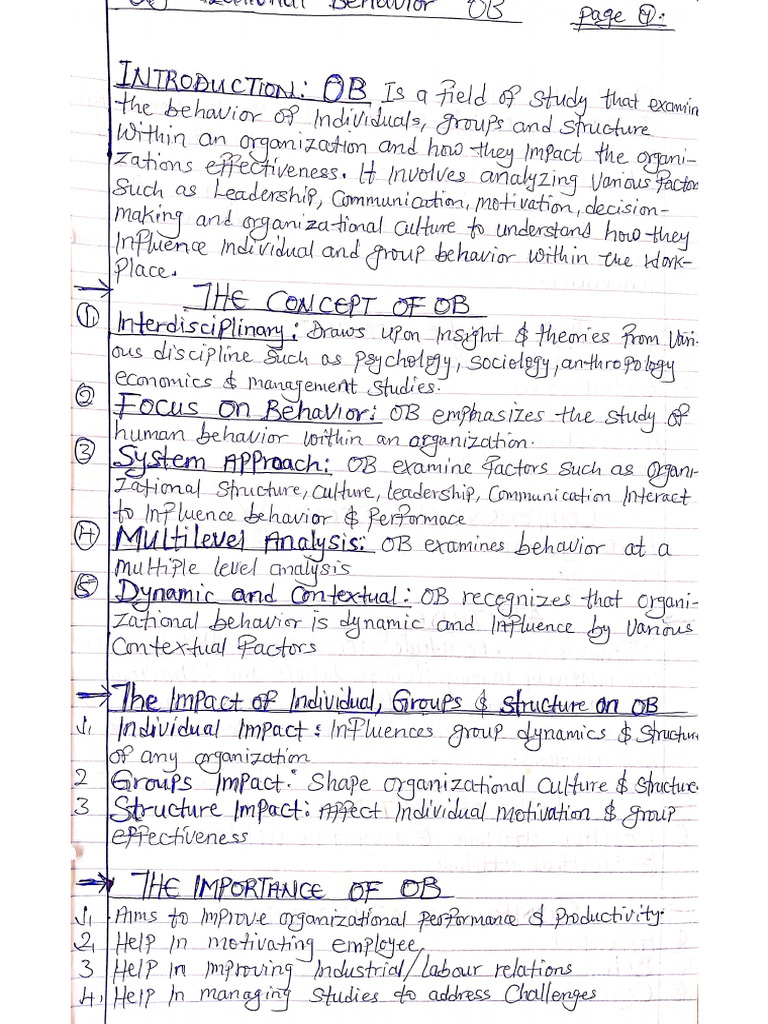 Behavior OB Page ①.
INTRODUCTION: OB Is a field of study that examin
the behavior of individuals, groups and structure
Within an organization and how they impact the organi-
zations effectiveness. It involves analyzing various factor
Such as Leadership, Communication, motivation, decision-
making and organizational culture to understand how they
Influence individual and group behavior within the Work-
Place.
→ THE CONCEPT OF OB
① Interdisciplinary: Draws upon insight & theories from Vari-
ous discipline such as psychology, sociology, anthropology
economics & management studies.
② Focus on Behavior: OB emphasizes the study of
human behavior within an organization.
③ System Approach: OB examine factors such as organi-
zational structure, culture, leadership, communication interact
to influence behavior & performace
④ Multilevel Analysis: OB examines behavior at a
multiple level analysis
⑤ Dynamic and Contextual: OB recognizes that organi-
zational behavior is dynamic and influence by various
Contextual factors
→ The Impact of Individual, Groups & Structure on OB
1, Individual Impact: Influences group dynamics & structure
of any organization
2 Groups Impact: Shape organizational culture & structure
3 Structure Impact: Affect individual motivation & group
effectiveness
→ THE IMPORTANCE OF OB
1, Aims to improve organizational performance & productivity.
2, Help In motivating employee
3 Help in improving Industrial/labour relations
4, Help In managing studies to address challenges